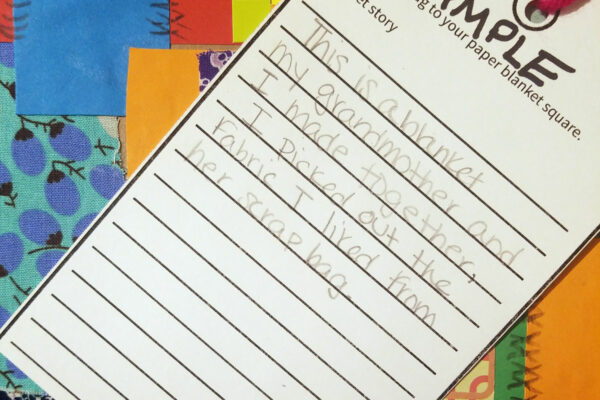 IMPLE
ng to your paper blanket square.
et story
This is a blanket
my grandmother and
I made together,
I Picked out the
fabric I liked from
her scrap bag.